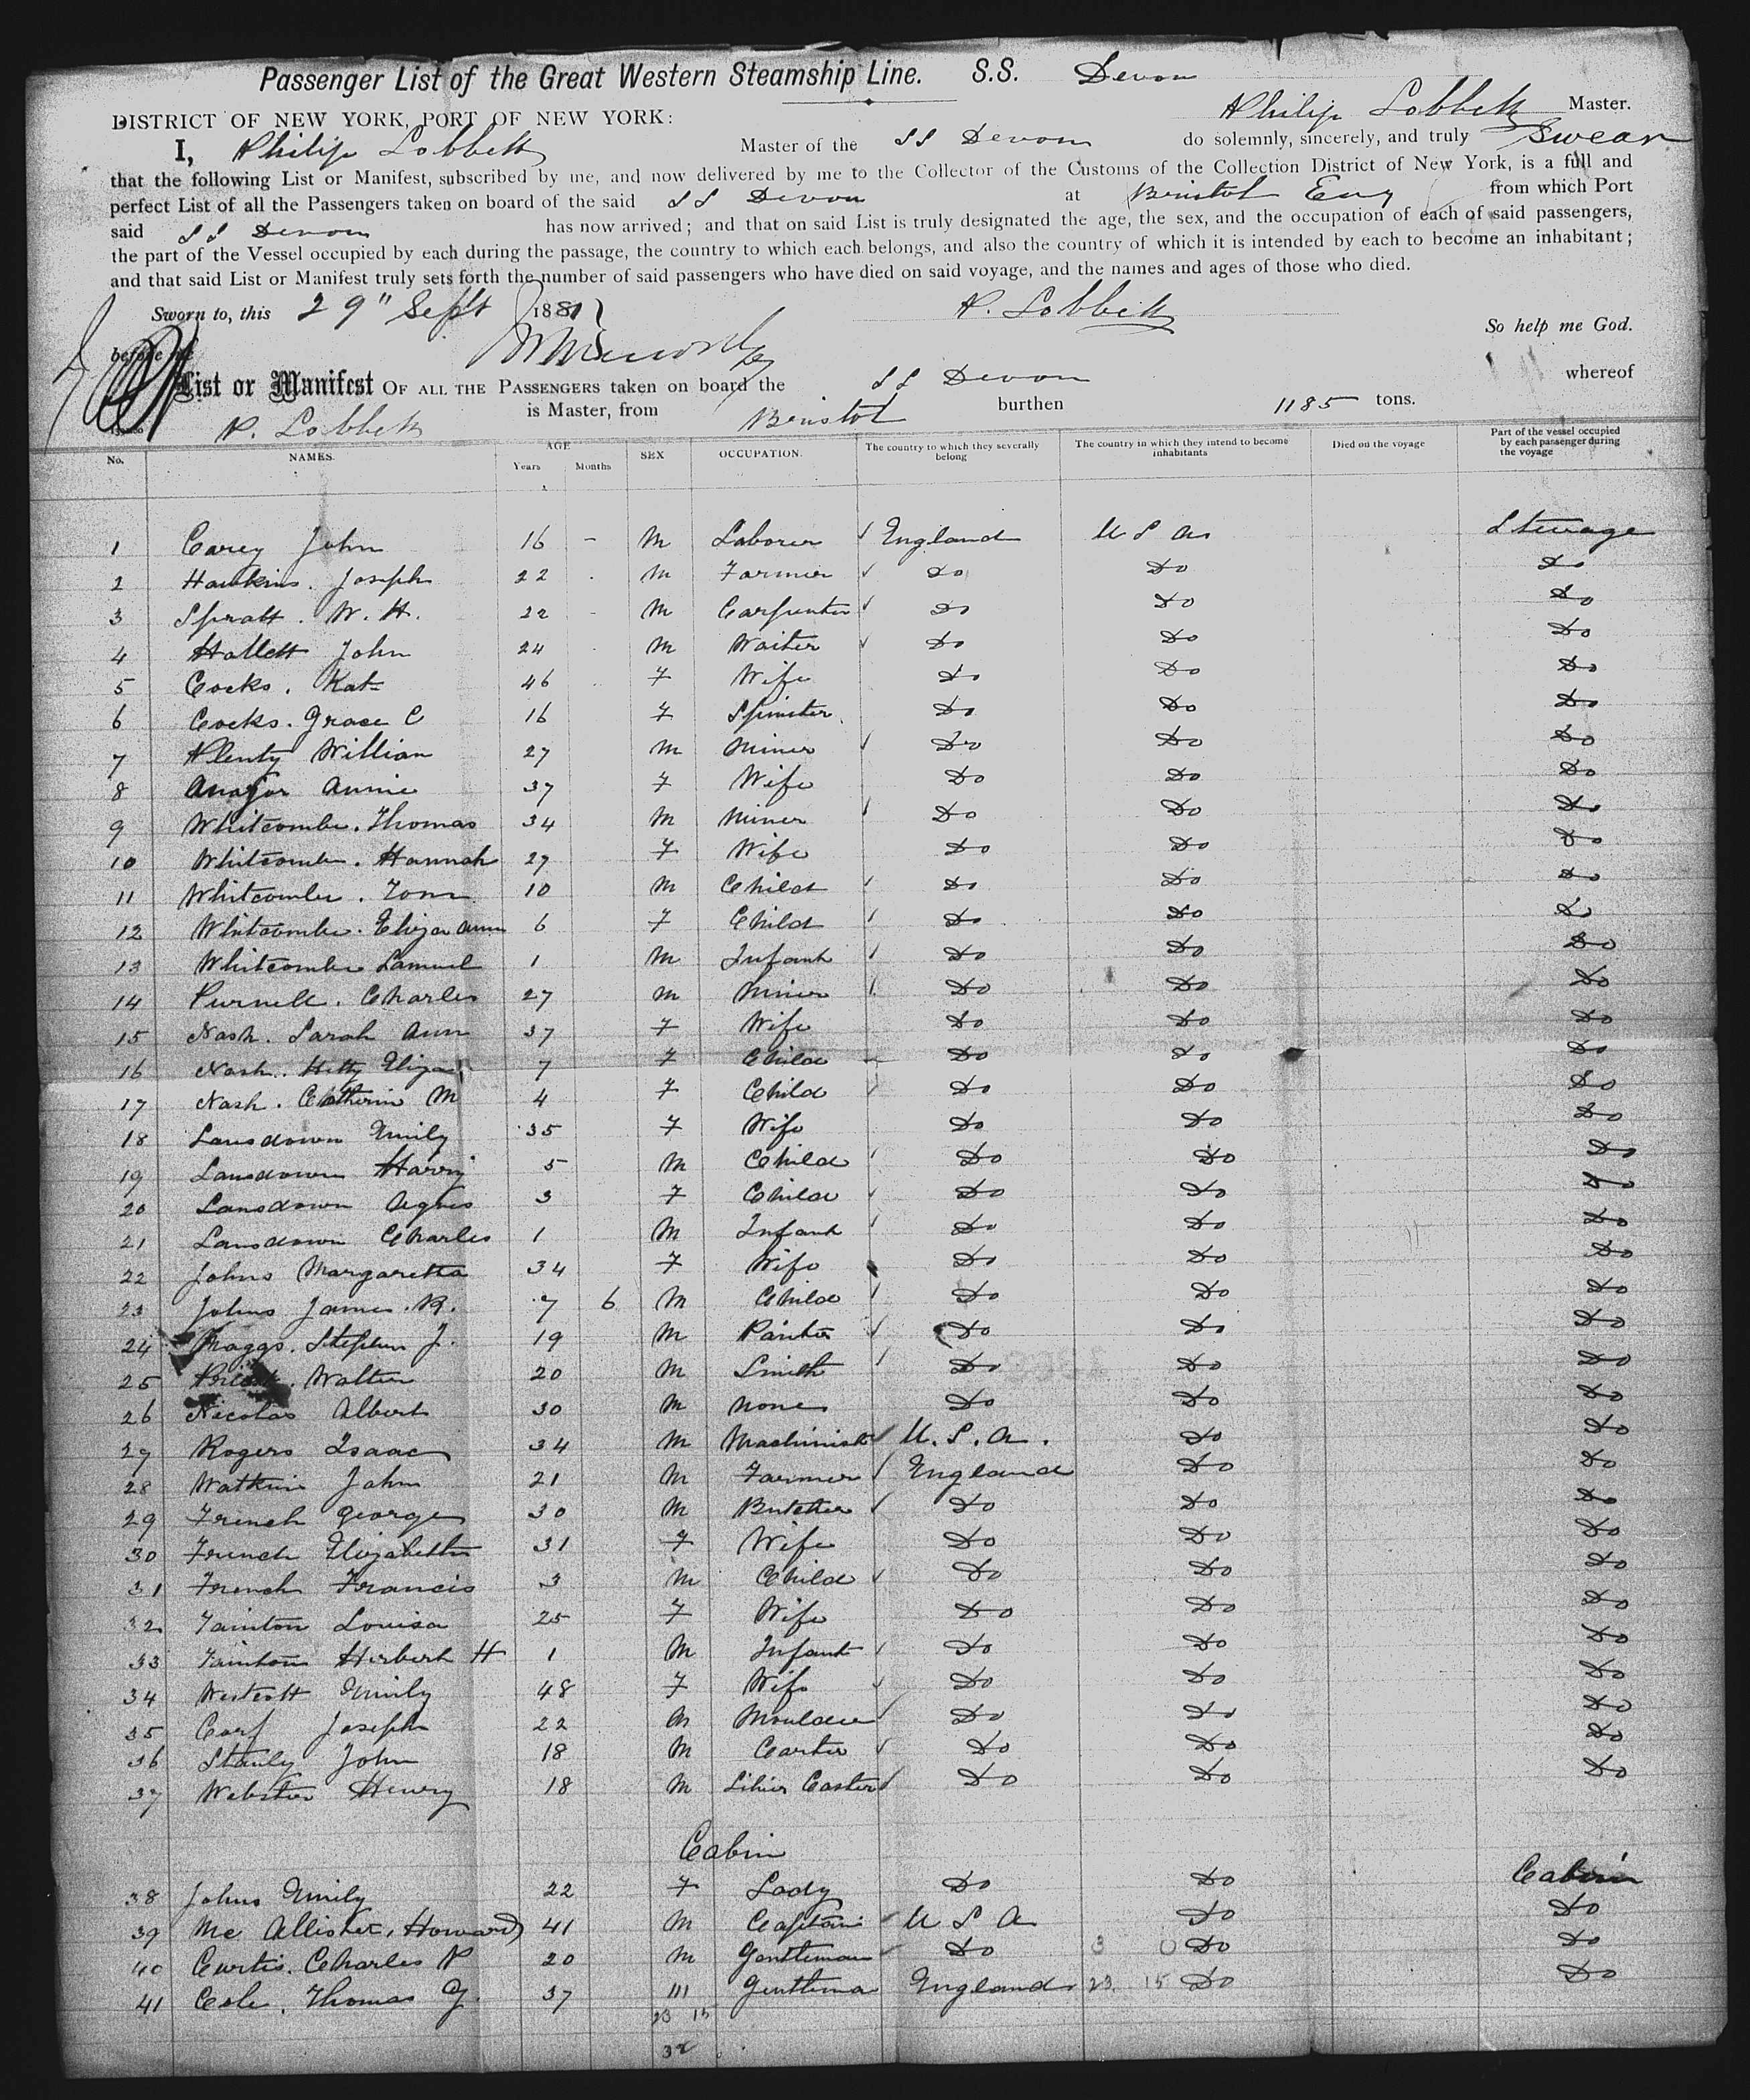 Passenger List of the Great Western Steamship Line. S.S. Devon
DISTRICT OF NEW YORK, PORT OF NEW YORK: Philip Lobbett Master.
I, Philip Lobbett Master of the SS Devon do solemnly, sincerely, and truly Swear
that the following List or Manifest, subscribed by me, and now delivered by me to the Collector of the Customs of the Collection District of New York, is a full and
perfect List of all the Passengers taken on board of the said SS Devon at Bristol Eng from which Port
said SS Devon has now arrived; and that on said List is truly designated the age, the sex, and the occupation of each of said passengers,
the part of the Vessel occupied by each during the passage, the country to which each belongs, and also the country of which it is intended by each to become an inhabitant;
and that said List or Manifest truly sets forth the number of said passengers who have died on said voyage, and the names and ages of those who died.
Sworn to, this 29" Sept 1881 P. Lobbett
So help me God.
before me
List or Manifest OF ALL THE PASSENGERS taken on board the SS Devon whereof
P. Lobbett is Master, from Bristol burthen 1185 tons.
No. NAMES. AGE Years Months SEX OCCUPATION. The country to which they severally belong The country in which they intend to become inhabitants Died on the voyage Part of the vessel occupied by each passenger during the voyage
1 Carey John 16 - M Laborer England U S A Steerage
2 Hawkins. Joseph 22 M Farmer Do Do Do
3 Spratt. W. H. 22 - M Carpenter Do Do Do
4 Hallett John 24 M Waiter Do Do Do
5 Cocks. Kate 46 F Wife Do Do Do
6 Cocks. Grace C 16 F Spinster Do Do Do
7 Plenty William 27 M Miner Do Do Do
8 Annie 37 F Wife Do Do Do
9 Whitcombe. Thomas 34 M Miner Do Do Do
10 Whitcombe. Hannah 27 F Wife Do Do Do
11 Whitcombe. Tom 10 M Child Do Do Do
12 Whitcombe. Eliza Ann 6 F Child Do Do Do
13 Whitcombe Samuel 1 M Infant Do Do Do
14 Purnell. Charles 27 M Miner Do Do Do
15 Nash. Sarah Ann 37 F Wife Do Do Do
16 Nash. Hetty Eliza 7 F Child Do Do Do
17 Nash. Catherine M 4 F Child Do Do Do
18 Lansdown Emily 35 F Wife Do Do Do
19 Lansdown Harry 5 M Child Do Do Do
20 Lansdown Agnes 3 F Child Do Do Do
21 Lansdown Charles 1 M Infant Do Do Do
22 Johns Margaretta 34 F Wife Do Do Do
23 Johns James. R. 7 6 M Child Do Do Do
24 Stephen J. 19 M Painter Do Do Do
25 Walter 20 M Smith Do Do Do
26 Nicolas Albert 30 M None Do Do Do
27 Rogers Isaac 34 M Machinist U. S. A. Do Do
28 Watkins John 21 M Farmer England Do Do
29 French George 30 M Butcher Do Do Do
30 French Elizabeth 31 F Wife Do Do Do
31 French Francis 3 M Child Do Do Do
32 Tainton Louisa 25 F Wife Do Do Do
33 Tainton Herbert H 1 M Infant Do Do Do
34 Westcott Emily 48 F Wife Do Do Do
35 Joseph 22 M Moulder Do Do Do
36 Stanly John 18 M Carter Do Do Do
37 Webster Henry 18 M Do Do Do
Cabin
38 Johns Emily 22 F Lady Do Do Cabin
39 Mc Allister, Howard 41 M Captain U S A Do Do
40 Curtis. Charles P 20 M Gentleman Do 3 0 Do Do
41 Cole. Thomas G. 37 M Gentleman England 23. 15 Do Do
23 15